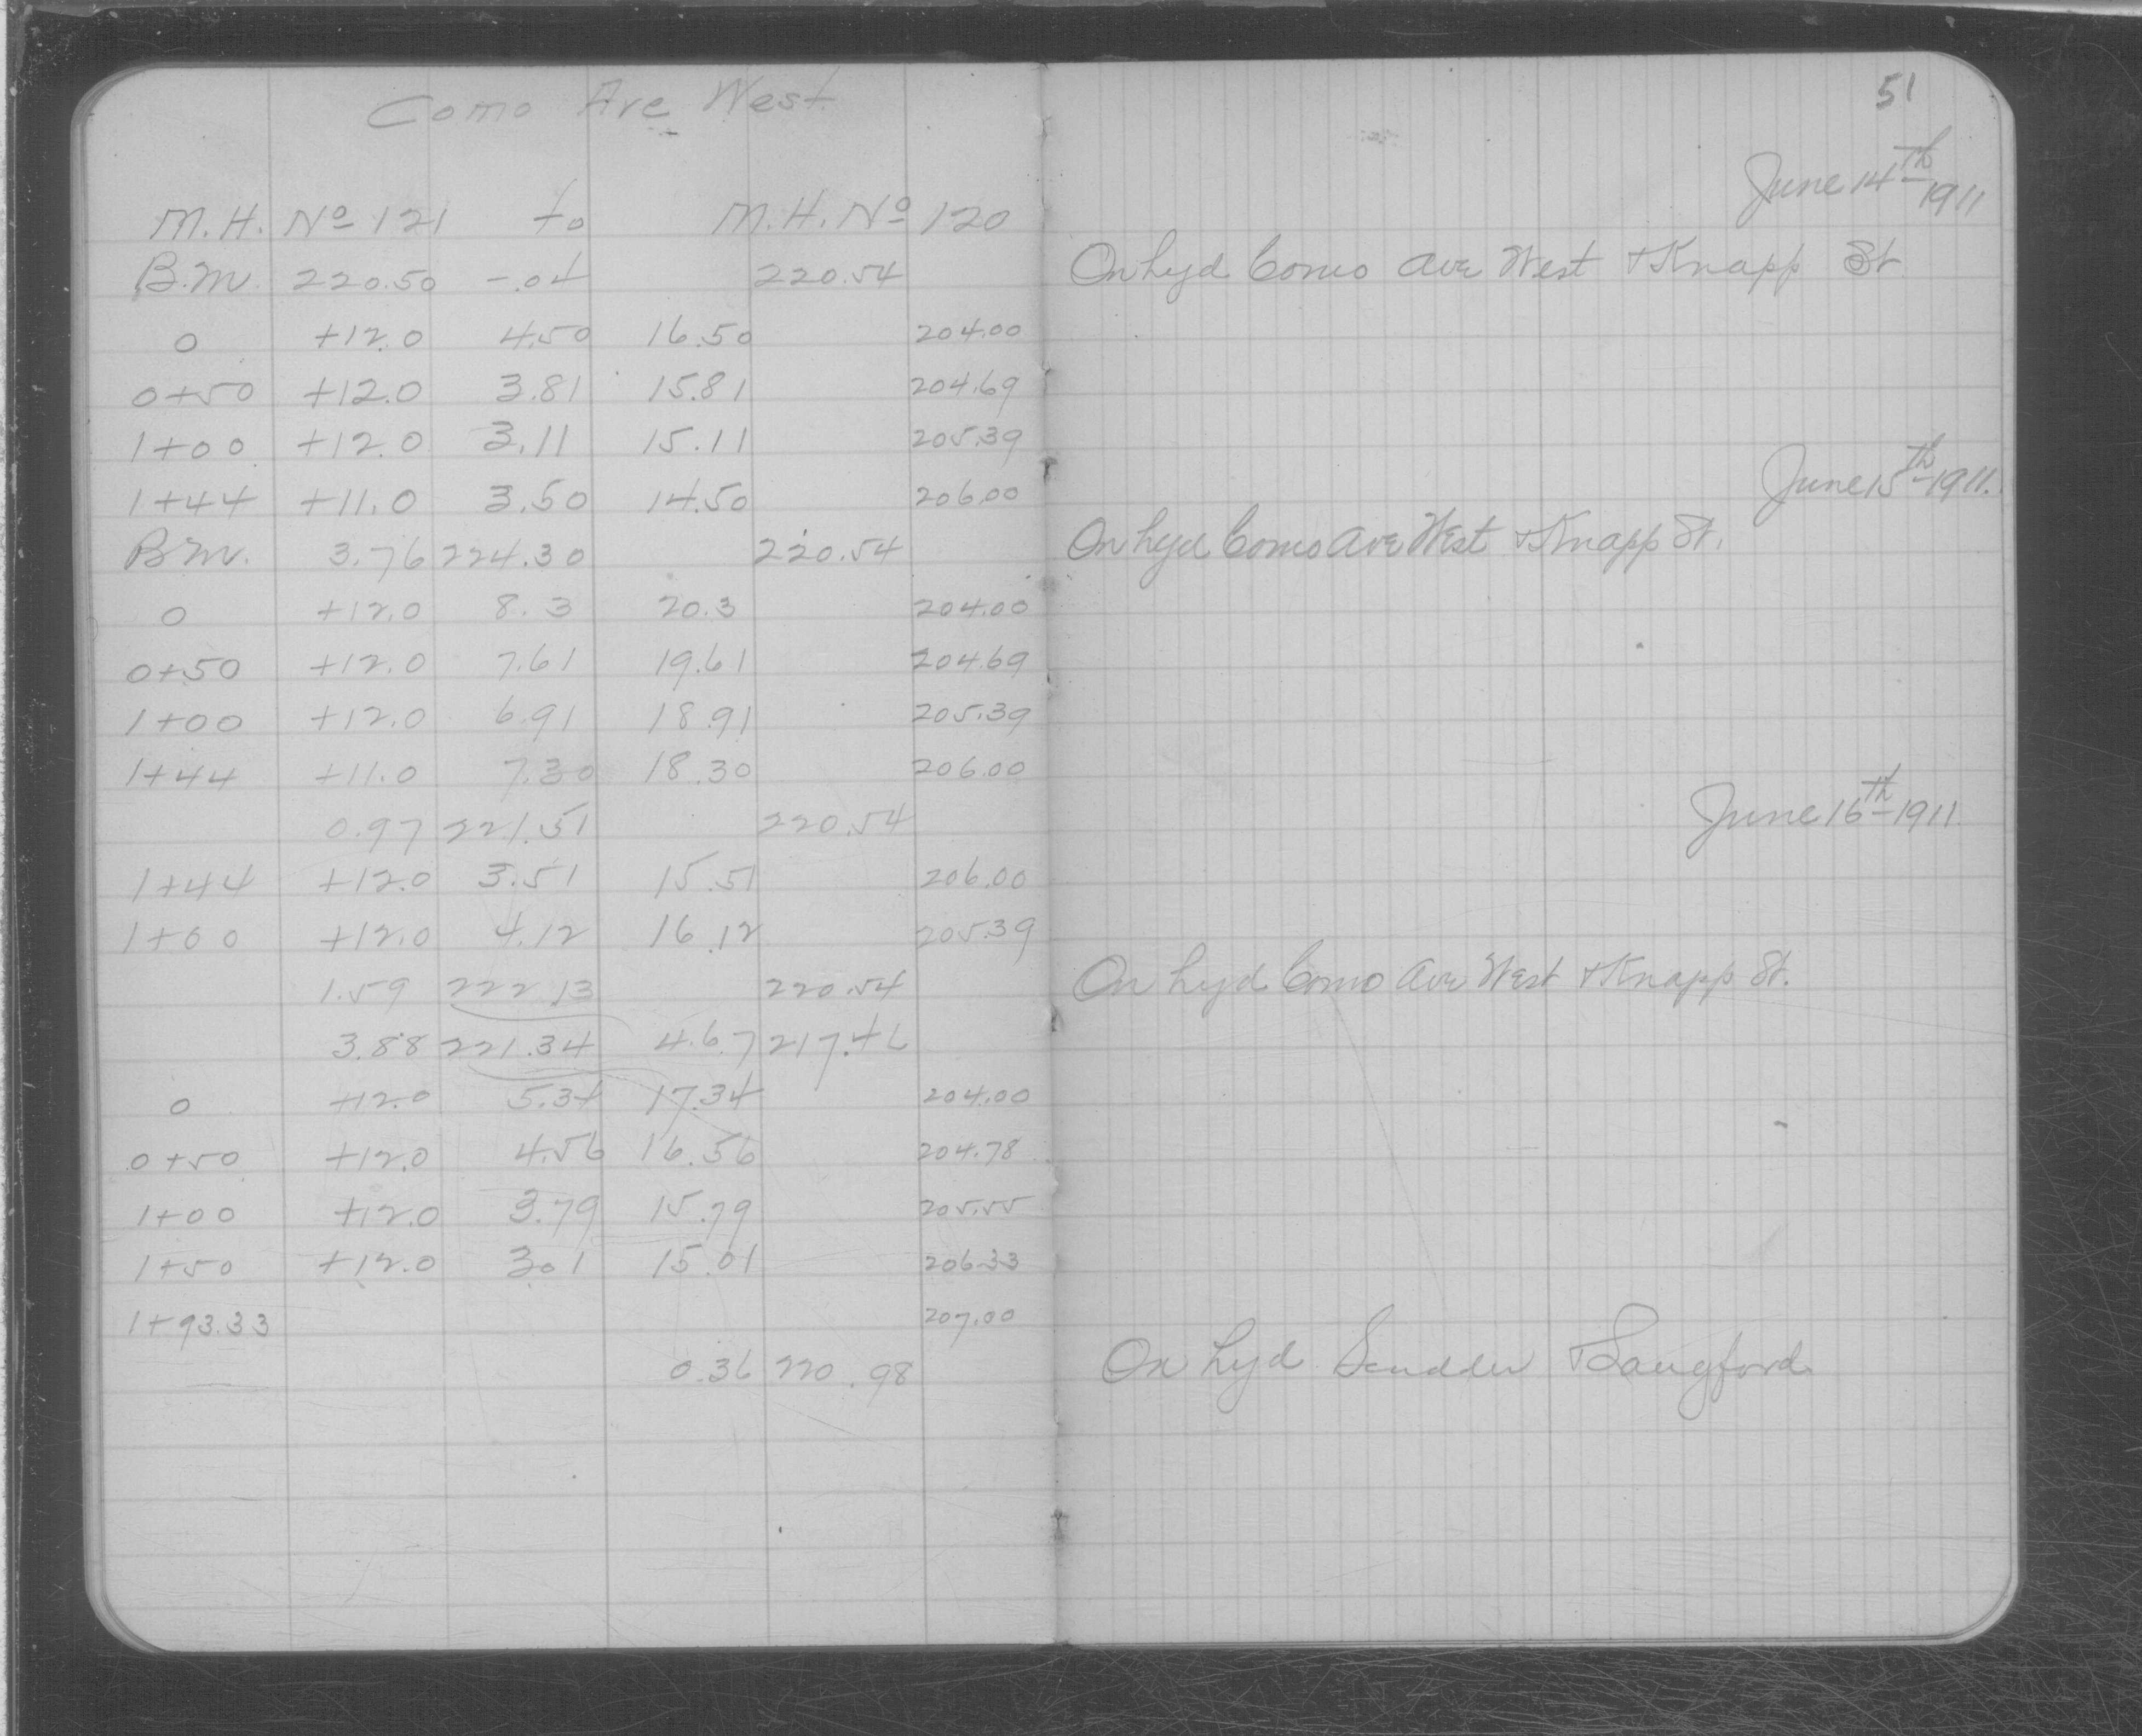 Como Ave West
M.H. Nº 121 to M.H. Nº 120
B.M. 220.50 -.04 220.54
0 +12.0 4.50 16.50 204.00
0+50 +12.0 3.81 15.81 204.69
1+00 +12.0 3.11 15.11 205.39
1+44 +11.0 3.50 14.50 206.00
B.M. 3.76 224.30 220.54
0 +12.0 8.3 20.3 204.00
0+50 +12.0 7.61 19.61 204.69
1+00 +12.0 6.91 18.91 205.39
1+44 +11.0 7.30 18.30 206.00
0.97 221.51 220.54
1+44 +12.0 3.51 15.51 206.00
1+00 +12.0 4.12 16.12 205.39
1.59 222.13 220.54
3.88 221.34 4.67 217.46
0 +12.0 5.34 17.34 204.00
0+50 +12.0 4.56 16.56 204.78
1+00 +12.0 3.79 15.79 205.55
1+50 +12.0 3.01 15.01 206.33
1+93.33 207.00
0.36 220.98
51
June 14th 1911
On hyd Como Ave West + Knapp St
June 15th 1911.
On hyd Como Ave West + Knapp St.
June 16th 1911
On hyd Como Ave West + Knapp St.
On hyd Scudder + Langford